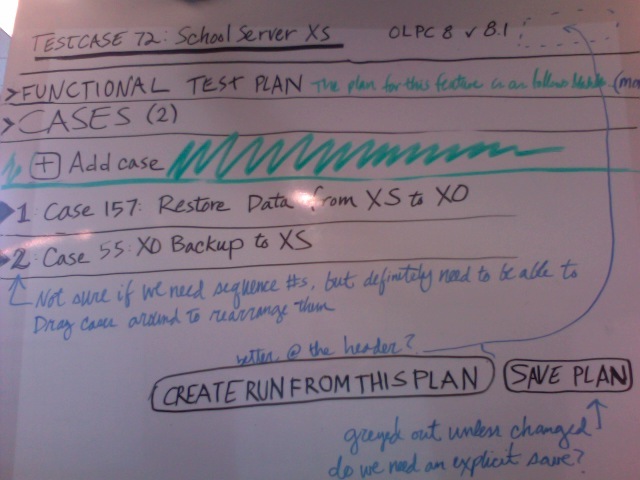 TESTCASE 72: School Server XS OLPC 8 v 8.1
>FUNCTIONAL TEST PLAN The plan for this feature is as follows
>CASES (2)
+ Add case
1: Case 157: Restore Data from XS to XO
2: Case 55: XO Backup to XS
Not sure if we need sequence #s, but definitely need to be able to
Drag cases around to rearrange them
better @ the header?
CREATE RUN FROM THIS PLAN SAVE PLAN
greyed out unless changed
do we need an explicit save?